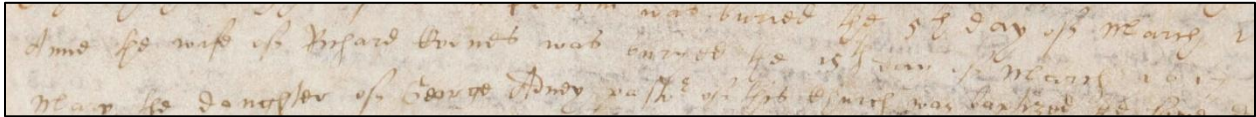 was buried the 5th day of March
Anne the wife of Richard was buried the 15th day of March
Mary the daughter of George Adney of this Church was baptized the